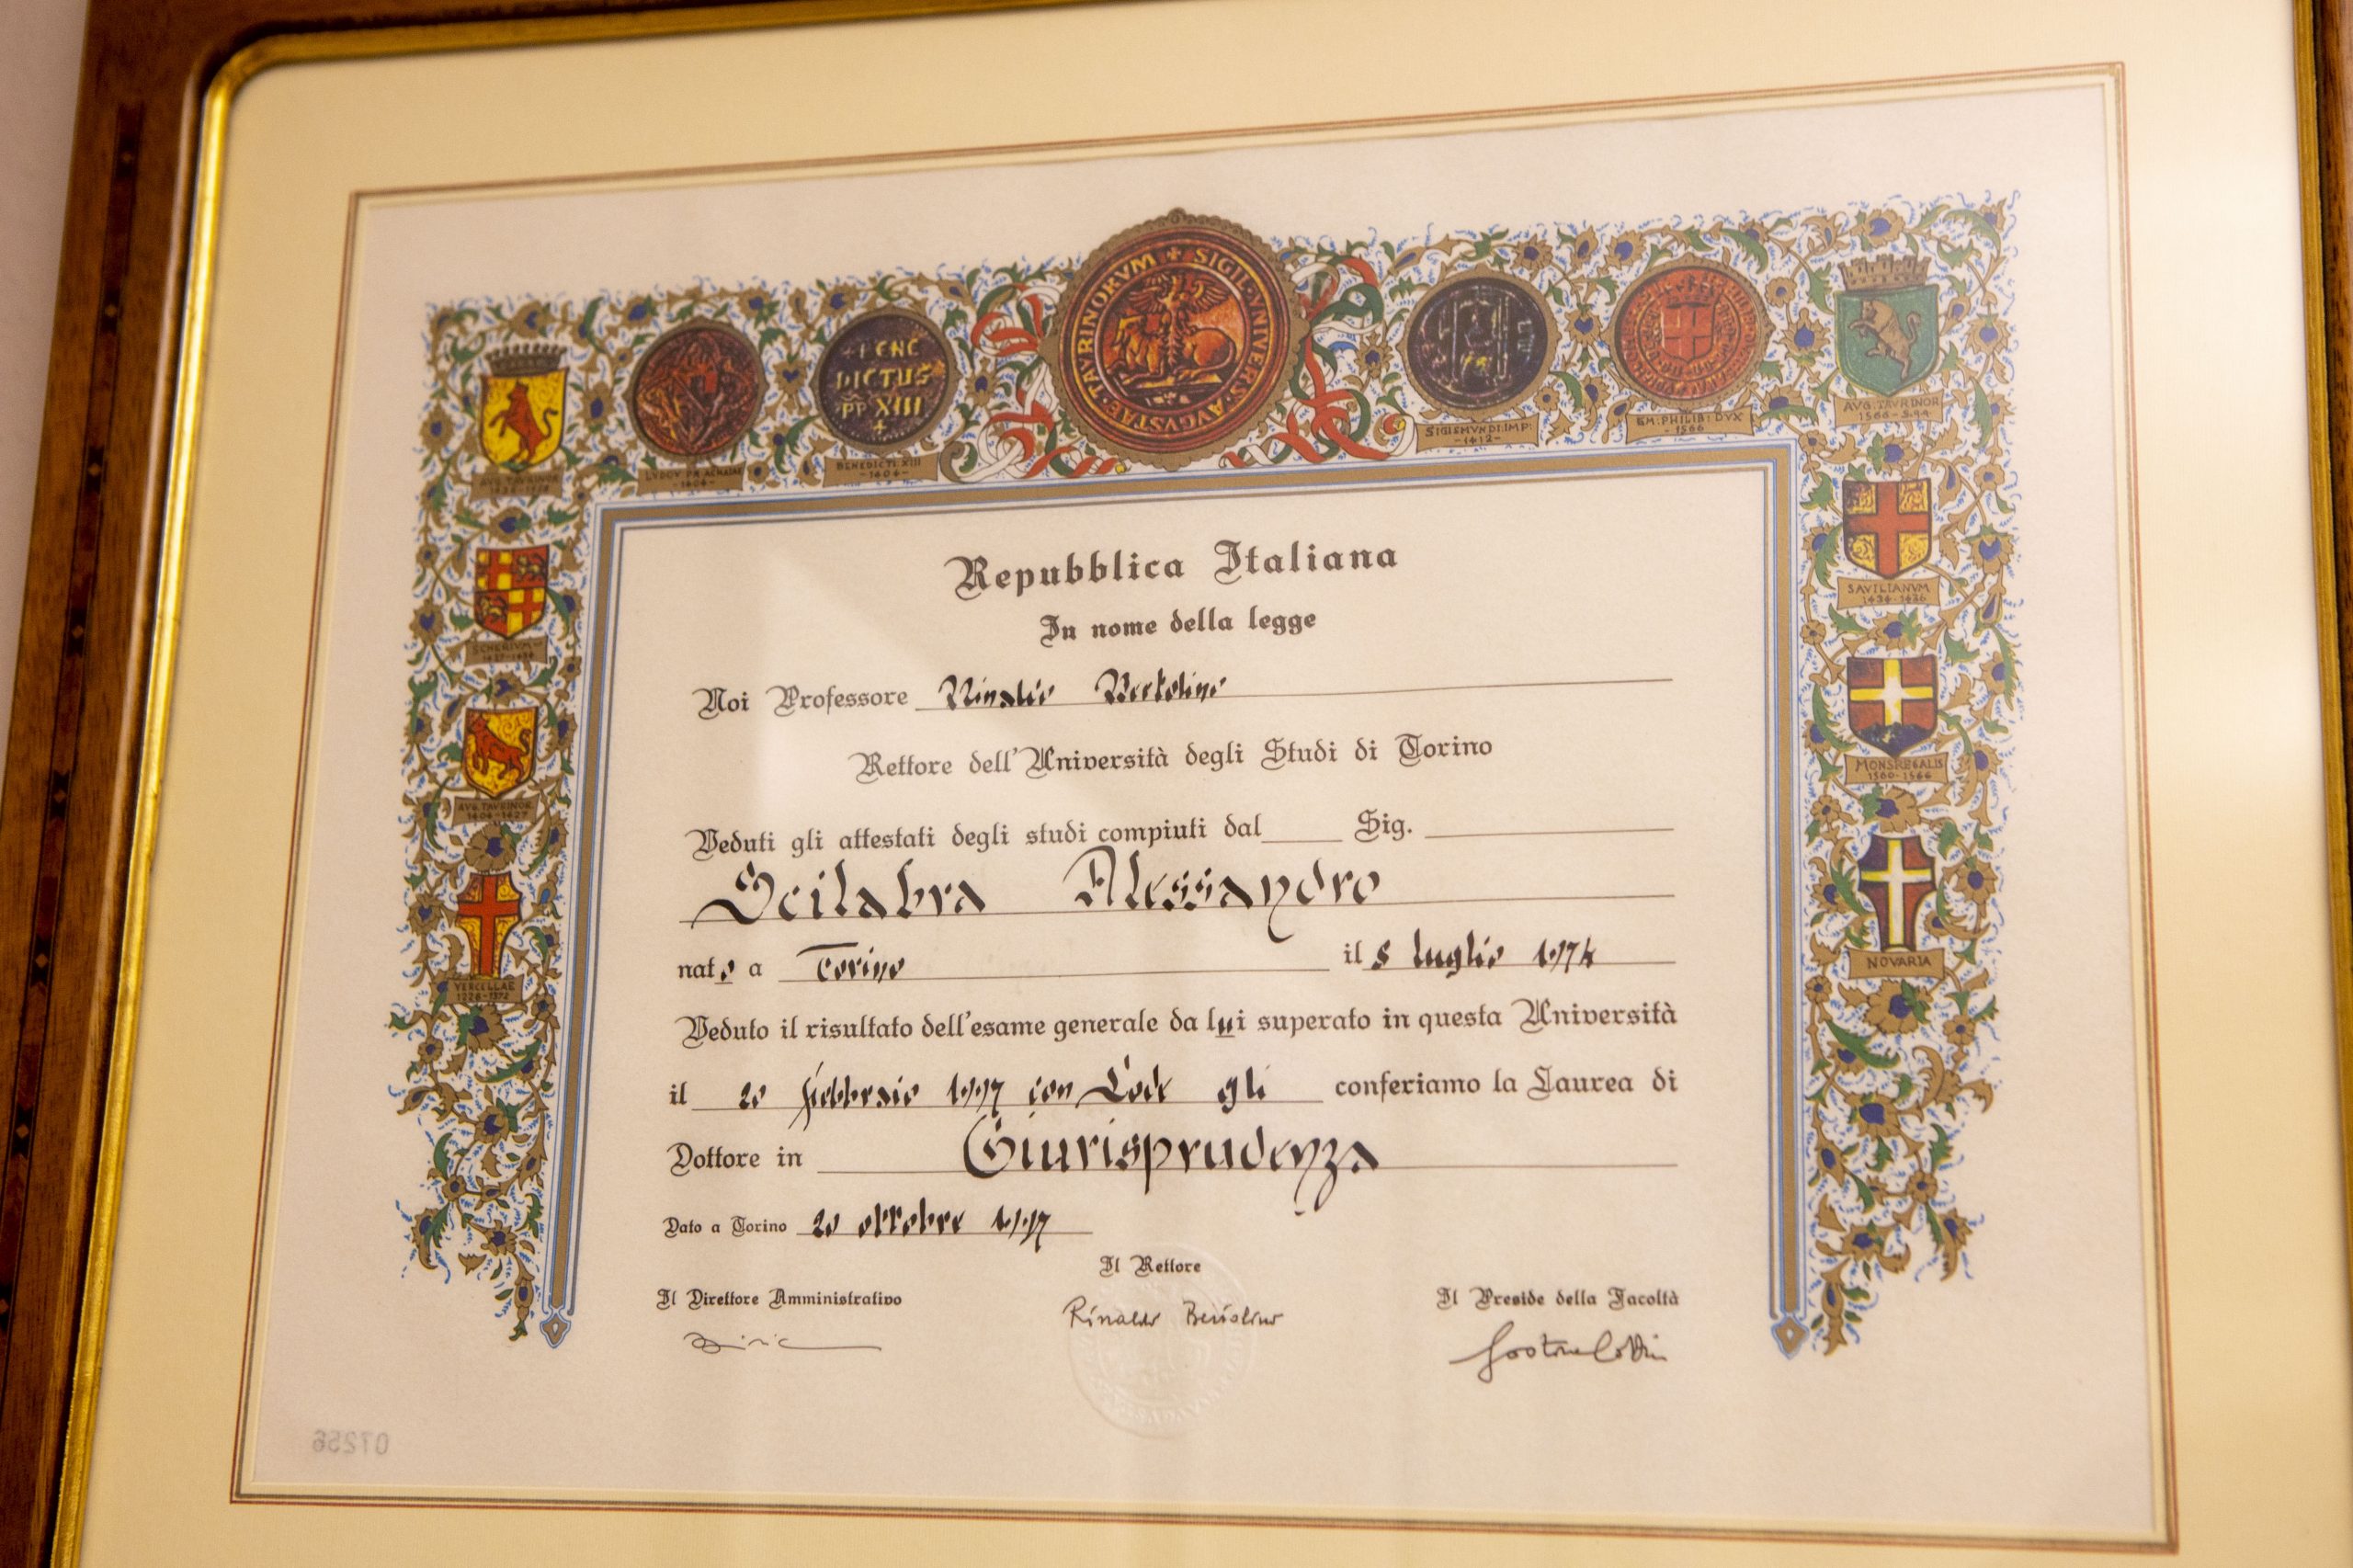 TAVRINORVM + SIGIL·VNIVERS·AVGVSTAE
+ BENE
DICTUS
PP XIII
+
AVG. TAVRINOR
LVDOV PR ACHAIAE
-1404-
BENEDICTI XIII
-1404-
SIGISMVNDI:IMP:
-1412-
EM:PHILIB:DVX
-1566
AVG:TAVRINOR
1566-
SAVILIANVM
1434-1436
MONSREGALIS
1560-1566
NOVARIA
CHERIVM
1427-1434
AVG TAVRINOR
1404-1427
VERCELLAE
1228-1372
Repubblica Italiana
In nome della legge
Noi Professore Rinaldo Bertolino
Rettore dell'Università degli Studi di Torino
Veduti gli attestati degli studi compiuti dal Sig.
Scilabra Alessandro
nato a Torino il 8 luglio 1974
Veduto il risultato dell'esame generale da lui superato in questa Università
il 20 febbraio 1997 con Lode gli conferiamo la Laurea di
Dottore in Giurisprudenza
Dato a Torino 20 ottobre 1997
Il Rettore
Il Direttore Amministrativo Il Preside della Facoltà
Rinaldo Bertolino
07256